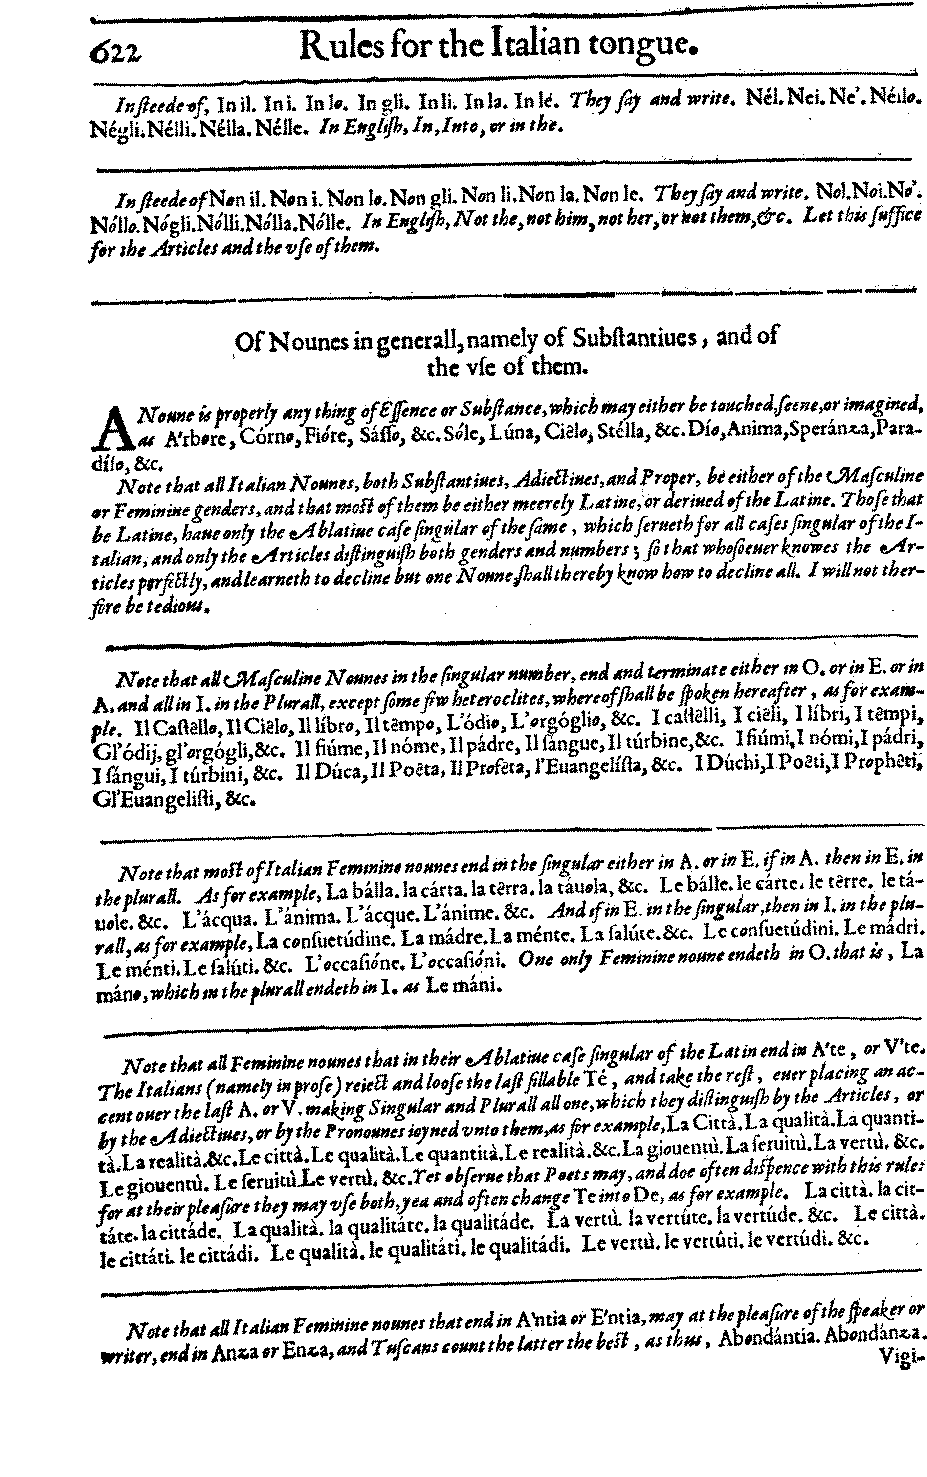 622 Rules for the Italian tongue.
In ſteede of, In il. In i. In lo. In gli. In li. In la. In lé. They ſay and write. Nél. Nei. Ne'. Néllo.
Négli. Nélli. Nélla. Nélle. In Engliſh, In, Into, or in the.
In ſteede of Non il. Non i. Non lo. Non gli. Non li. Non la. Non le. They ſay and write. Nol. Noi. No'.
Nóllo. Nógli. Nólli. Nólla. Nólle. In Engliſh, Not the, not him, not her, or not them, &c. Let this ſuffice
for the Articles and the vſe of them.
Of Nounes in generall, namely of Subſtantiues, and of
the vſe of them.
A Noune is properly any thing of Eſſence or Subſtance, which may either be touched, ſeene, or imagined,
as A'rbore, Córno, Fióre, Sáſſo, &c. Sóle, Lúna, Ciêlo, Stélla, &c. Dío, Anima, Speránza, Para-
díſo, &c.
Note that all Italian Nounes, both Subſtantiues, Adiectiues, and Proper, be either of the Maſculine
or Feminine genders, and that moſt of them be either meerely Latine, or deriued of the Latine. Thoſe that
be Latine, haue only the Ablatiue caſe ſingular of the ſame, which ſerueth for all caſes ſingular of the I-
talian, and only the Articles diſtinguiſh both genders and numbers; ſo that whoſoeuer knowes the Ar-
ticles perfectly, and learneth to decline but one Noune, ſhall thereby know how to decline all. I will not ther-
fore be tedious.
Note that all Maſculine Nounes in the ſingular number, end and terminate either in O. or in E. or in
A. and all in I. in the Plurall, except ſome few heteroclites, whereof ſhall be ſpoken hereafter, as for exam-
ple. Il Caſtêllo, Il Ciêlo, Il líbro, Il têmpo, L'ódio, L'orgóglio, &c. I caſtêlli, I ciêli, I líbri, I têmpi,
Gl'ódij, gl'orgógli, &c. Il fiúme, Il nóme, Il pádre, Il ſángue, Il túrbine, &c. I fiúmi, I nómi, I pádri,
I ſángui, I túrbini, &c. Il Dúca, Il Poêta, Il Profêta, l'Euangelíſta, &c. I Dúchi, I Poêti, I Prophêti,
Gl'Euangeliſti, &c.
Note that moſt of Italian Feminine nounes end in the ſingular either in A. or in E. if in A. then in E. in
the plurall. As for example, La bálla. la cárta. la têrra. la táuola, &c. Le bálle. le cárte. le têrre. le tá-
uole. &c. L'ácqua. L'ánima. L'ácque. L'ánime. &c. And if in E. in the ſingular, then in I. in the plu-
rall, as for example, La conſuetúdine. La mádre. La ménte. La ſalúte. &c. Le conſuetúdini. Le mádri.
Le ménti. Le ſalúti. &c. L'occaſióne. L'occaſióni. One only Feminine noune endeth in O. that is, La
máno, which in the plurall endeth in I. as Le máni.
Note that all Feminine nounes that in their Ablatiue caſe ſingular of the Latin end in A'te, or V'te.
The Italians (namely in proſe) reiect and looſe the laſt ſillable Te, and take the reſt, euer placing an ac-
cent ouer the laſt A. or V. making Singular and Plurall all one, which they diſtinguiſh by the Articles, or
by the Adiectiues, or by the Pronounes ioyned vnto them, as for example, La Città. La qualità. La quanti-
tà. La realità. &c. Le città. Le qualità. Le quantità. Le realità. &c. La giouentù. La ſeruitù. La vertù. &c.
Le giouentù. Le ſeruitù. Le vertù. &c. Yet obſerue that Poets may, and doe often diſpence with this rule:
for at their pleaſure they may vſe both, yea and often change Te into De, as for example. La città. la cit-
táte. la cittáde. La qualità. la qualitáte. la qualitáde. La vertù. la vertúte. la vertúde. &c. Le città.
le cittáti. le cittádi. Le qualità. le qualitáti. le qualitádi. Le vertù. le vertúti. le vertúdi. &c.
Note that all Italian Feminine nounes that end in A'ntia or E'ntia, may at the pleaſure of the ſpeaker or
writer, end in Anza or Enza, and Tuſcans count the latter the beſt, as thus, Abondántia. Abondánza.
Vigi-